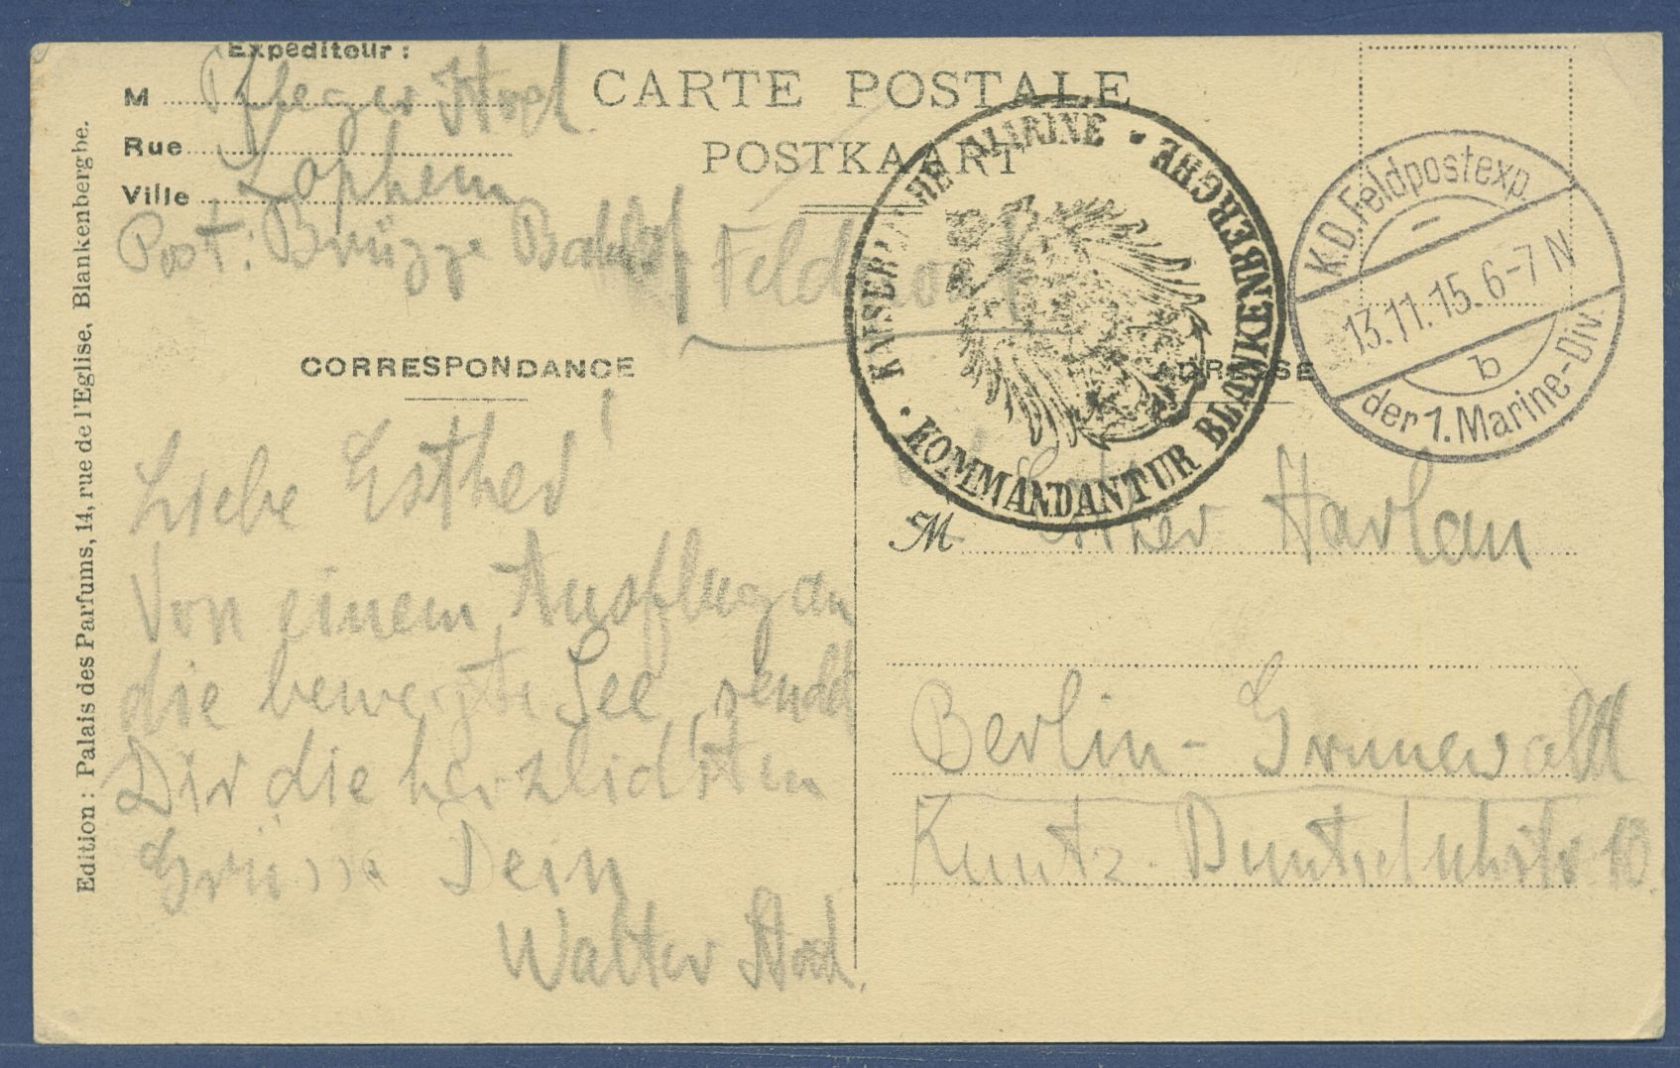 Expéditeur :
M Pfleger
Rue
Ville Lophem
Post: Brügge Bahnhof Feldpost
CARTE POSTALE
POSTKAART
KAISERLICHE MARINE • KOMMANDANTUR BLANKENBERGHE •
K.D. Feldpostexp.
13.11.15. 6-7 N
b
der 1. Marine-Div.
CORRESPONDANCE
ADRESSE
Liebe Esther!
Von einem Ausflug an
die bewegte See sendet
Dir die herzlichsten
Grüsse Dein
Walter
M Esther Harlan
Berlin-Grunewald
Kuntz-Buntschuhstr 10.
Edition : Palais des Parfums, 14, rue de l'Eglise, Blankenberghe.